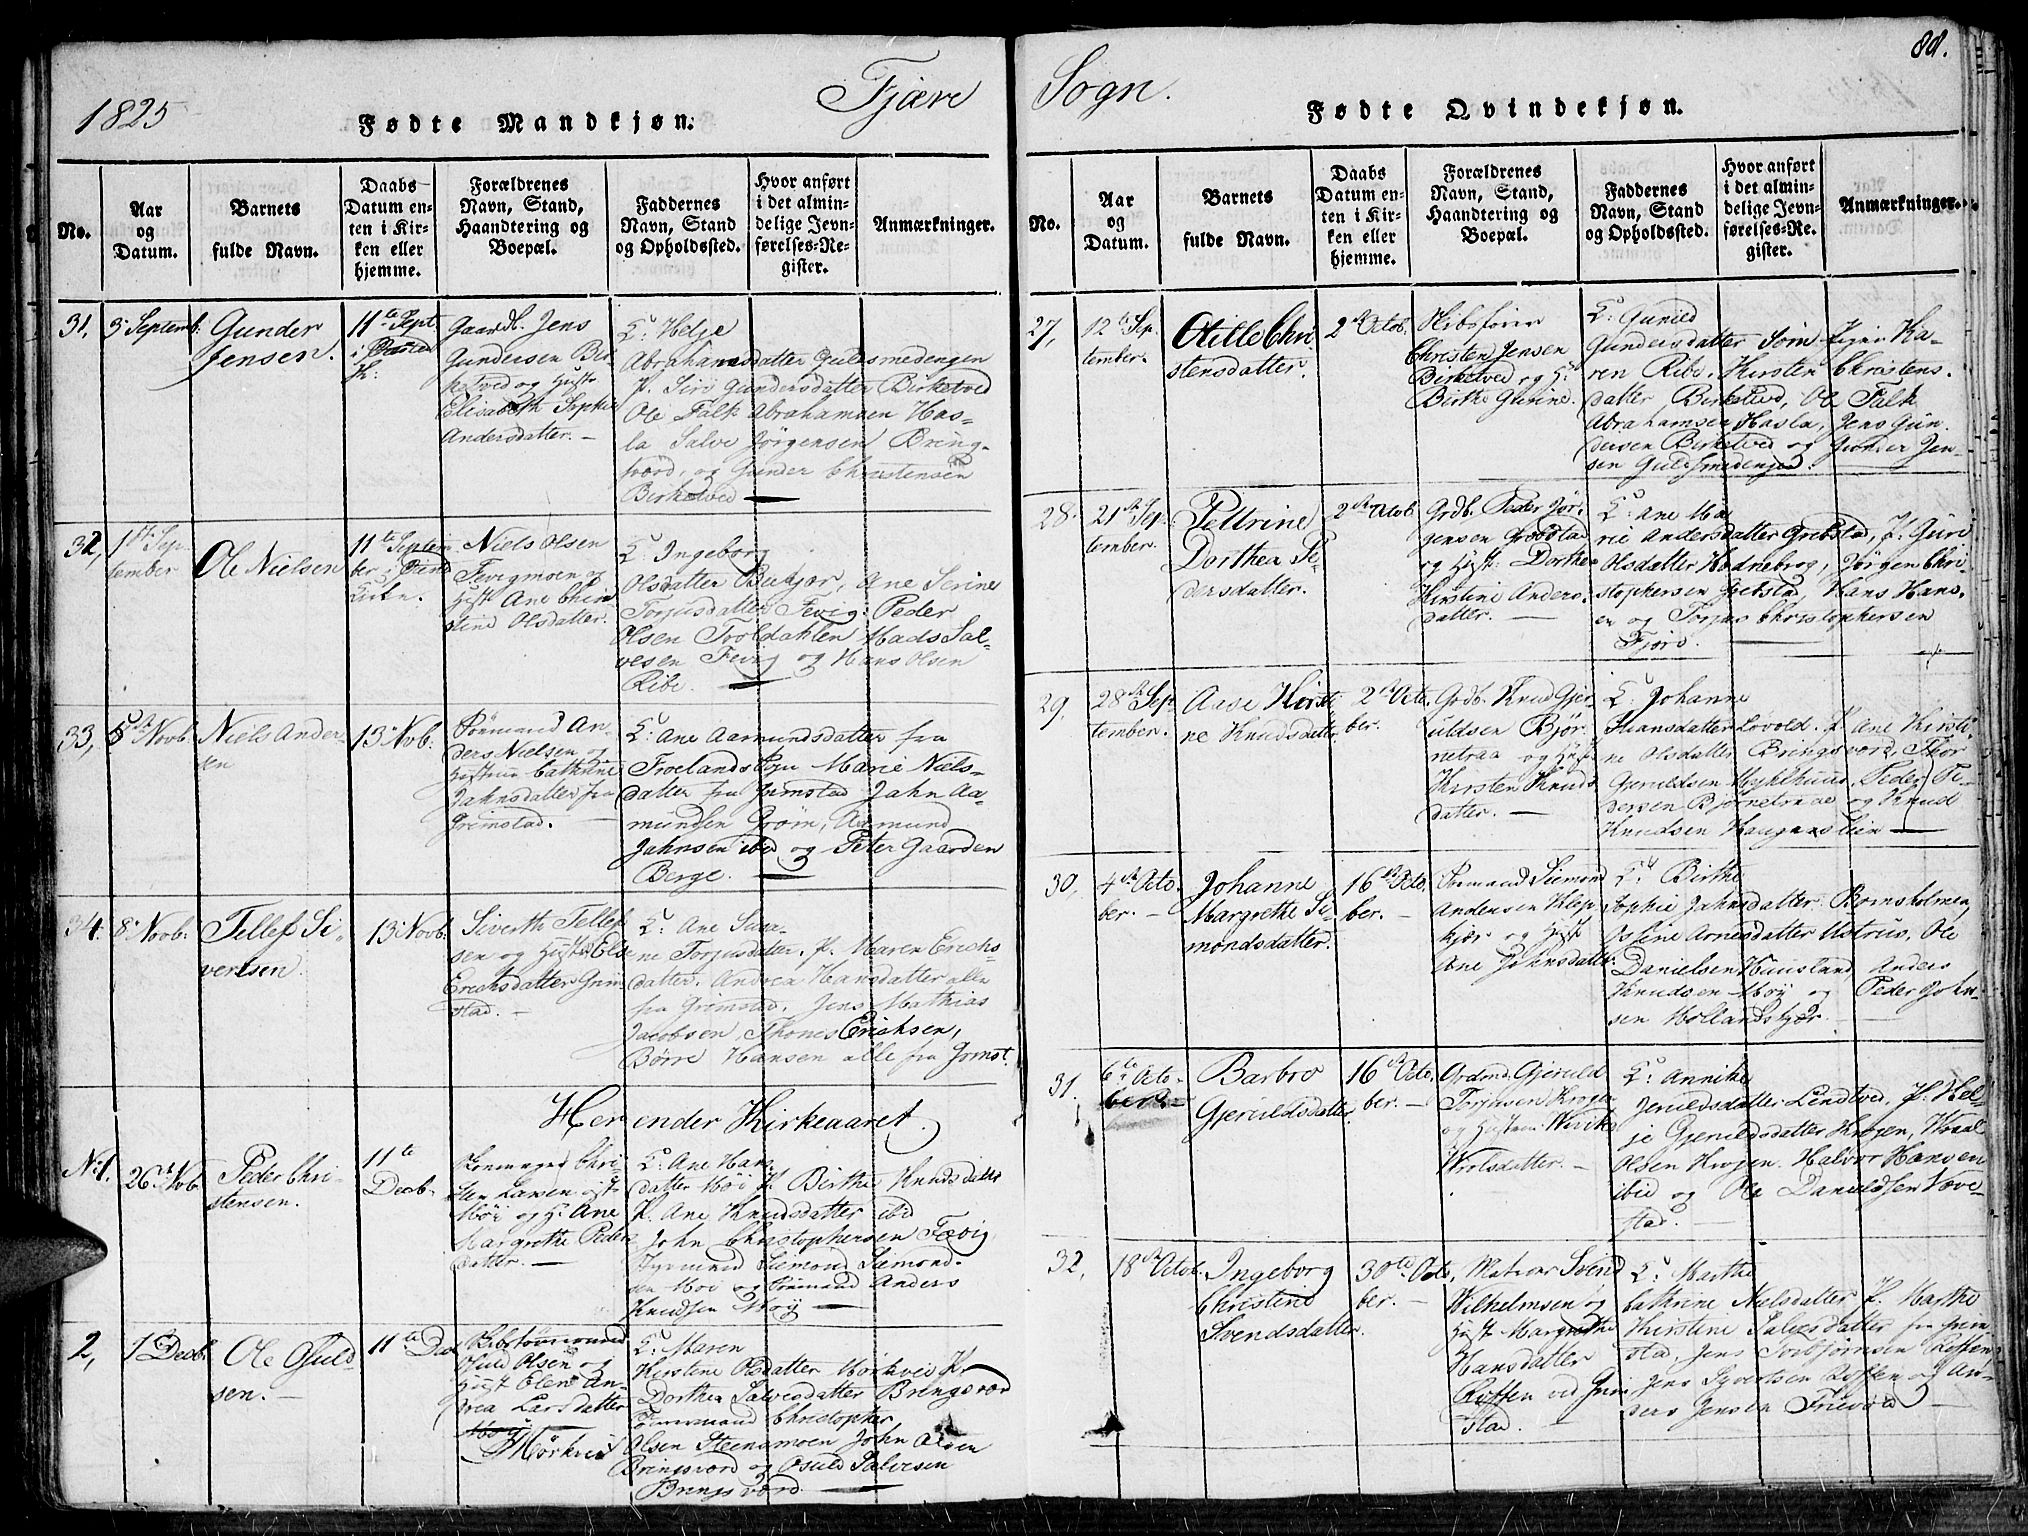 1825
Fjære
Fødte Mandkjøn.
No.
Aar
og
Datum.
Barnets
fulde Navn.
Daabs
Datum en-
ten i Kir-
ken eller
hjemme.
Forældrenes
Navn, Stand,
Haandtering og
Boepæl.
Faddernes
Navn, Stand
og Opholdssted.
Hvor anført
i det almin-
delige Jevn-
førelses-Re-
gister.
Anmærkninger.
31,
3 Septemb:
Gunder
Jensen.
11te Sept.
Gaardb. Jens
Gundersen Bir-
ketved og Hust:
Elisabeth Sophie
Andersdatter. —
Helje
Abrahamsdatter Guldsmedengen
P. Siri Gundersdatter Birketved
Ole Falk Abrahamsen Has-
la Salve Jørgensen Bring-
sværd, og Gunder Christensen
Birketved —
32,
1st Sep-
tember
Ole Nielsen
11te Septem
ber i
Kirke.
Niels Olsen
Fevigmoen og
Hust Ane Chri
stine Olsdatter.
Ingeborg
Olsdatter Beekjær, Ane Serine
Torjusdatter Fevig: Peder
Olsen Troldahlen Mads Sal-
vesen Fevig og Hans Olsen
Ribe. —
33,
5 Novb.
Niels Ander-
sen
13 Novb:
An-
ders Nielsen og
Hustrue Cathrine
Jahnsdatter fra
Grimstad. —
Ane Aamundsdatter fra
Froelands Sogn Marie Niels-
datter fra Grimstad Jahn Aa-
mundsen Grøm, Aamund
Jahnsen ibid og Peter Gaarden
Berge. —
34.
8 Novb:
Tellef Si-
vertsen
13 Novb:
Siverth Tellef
sen og Hust: Else
Erichsdatter Grim
stad. —
Ane Susa-
ne Torjusdatter, P. Maren Erichs-
datter. Andrea Hansdatter alle
fra Grimstad, Jens Mathias
Jacobsen Thones Erichsen,
Børre Hansen alle fra Grmst.
Her ender Kirkeaaret.
No 1.
26 Novb.
Peder Chri-
stensen.
11te
Decb.
Chri-
sten Larsen
Møi og H: Ane
Margrethe Peders
datter. —
Ane Hans
datter Møi P. Birthe Knudsdatte
P. Ane Knudsdatter ibid
John Christophersen Fævig
Siemond Siemond-
sen Møi og Anders
Knudsen Møy —
2,
1 Decb.
Ole Osuld
sen. —
11te Decb
Osuld Olsen og
Hust Elen An-
drea Larsdatter
Mørkved
Maren
Kirstene Olsdatter Mørkved P.
Dorthea Salvesdatter Bringsværd
Christopher
Olsen Steensmoen John Olsen
Bringsværd og Osuld Salvesen
Bringsværd. —
Sogn.
88.
Fødte Qvindekjøn.
No.
Aar
og
Datum.
Barnets
fulde Navn.
Daabs
Datum en-
ten i Kir-
ken eller
hjemme.
Forældrenes
Navn, Stand,
Haandtering og
Boepæl.
Faddernes
Navn, Stand
og Opholdssted.
Hvor anført
i det almin-
delige Jevn-
førelses-Re-
gister.
Anmærkninger.
27,
12te Sep-
tember.
Otille Chri-
stensdatter.
2 Octob.
Skibsfører
Christen Jensen
Birketved og H:
Birthe Gurine.
Gunild
Gundersdatter Søm Pigen Ka-
ren Ribe. Kirsten Christens-
datter Birketved, Ole Falk
Abrahamsen Hasla, Jens Gun-
dersen Birketved og Gunder Jen-
sen Guldsmedengen.
28.
21 Sep-
tember.
Pettrine
Dorthea Pe-
dersdatter.
2 Octob.
Grdb. Peder Jør-
gensen Grobstad
og Hust: Dorthe
Kirstine Anders-
datter. —
Ane Ma
rie Andersdatter Grobstad, P. Guri
Olsdatter Hodnebrog, Jørgen Chri-
stophersen Grebstad, Hans Hans-
en og Torjus Christophersen
Fjørd. —
29,
28 Sep
tember.
Aase Kirsti
ne Knudsdatter
2 Octo.
ber.
Grdb. Knud Gjer-
uldsen Bjør-
netraa og Hust
Kirsten Knuds
datter. —
Johanne
Hansdatter Lovold. P. Ane Kirsti-
ne Olsdatter Bringsværd, Thor
Gjeruldsen Myklehuus, Peder Pe-
dersen Bjørnetraae og Knud
Knudsen Haugenslien —
30,
4 Octo.
ber. —
Johanne
Margrethe Si-
mondsdatter.
16 Octo.
ber. —
Siemond
Andersen Klep
kjær og Hust
Ane Johnsdatter
Birthe
Sophie Jahnsdatter Bornsholmen,
Arnesdatter Ole
Danielsen Hausland, Anders
Knudsen Møy og Peder John-
sen Hollandskjær. —
31.
6te Octo-
ber
Barbro
Gjeruldsdatter
16 Octo.
ber. —
Gjeruld
Torjusen Krogen
og Hustrue
Wrolsdatter. —
Annike
Jeruldsdatter Lindtved, P. Hel-
je Gjeruldsdatter Krogen, Wraal
Olsen Krogen. Halvor Hansen
ibid og Ole Danieldsen Væve-
stad. —
32,
18 Octob.
Ingeborg
Christine
Svendsdatter.
30te Octo
ber. —
Matros Svend
Wilhelmsen og
Hust Margrethe
Hansdatter
Røffen ved Grim
stad.
Marthe
Cathrine Nielsdatter P. Marthe
Kirstene Salvesdatter fra Grim
stad, Jens Torbjørnsen Røffen
Jens Syvertsen Røffen og An-
ders Jensen Frievold —